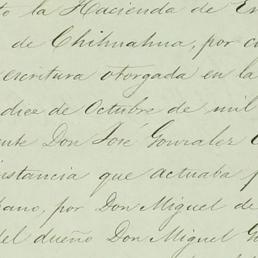 to la Hacienda de En
de Chihuahua, por co
escritura otorgada en la
diez de Octubre de mil
ente Don José Gonzalez C
instancia que actuaba p
bano, por Don Miguel de
del dueño Don Miguel Go